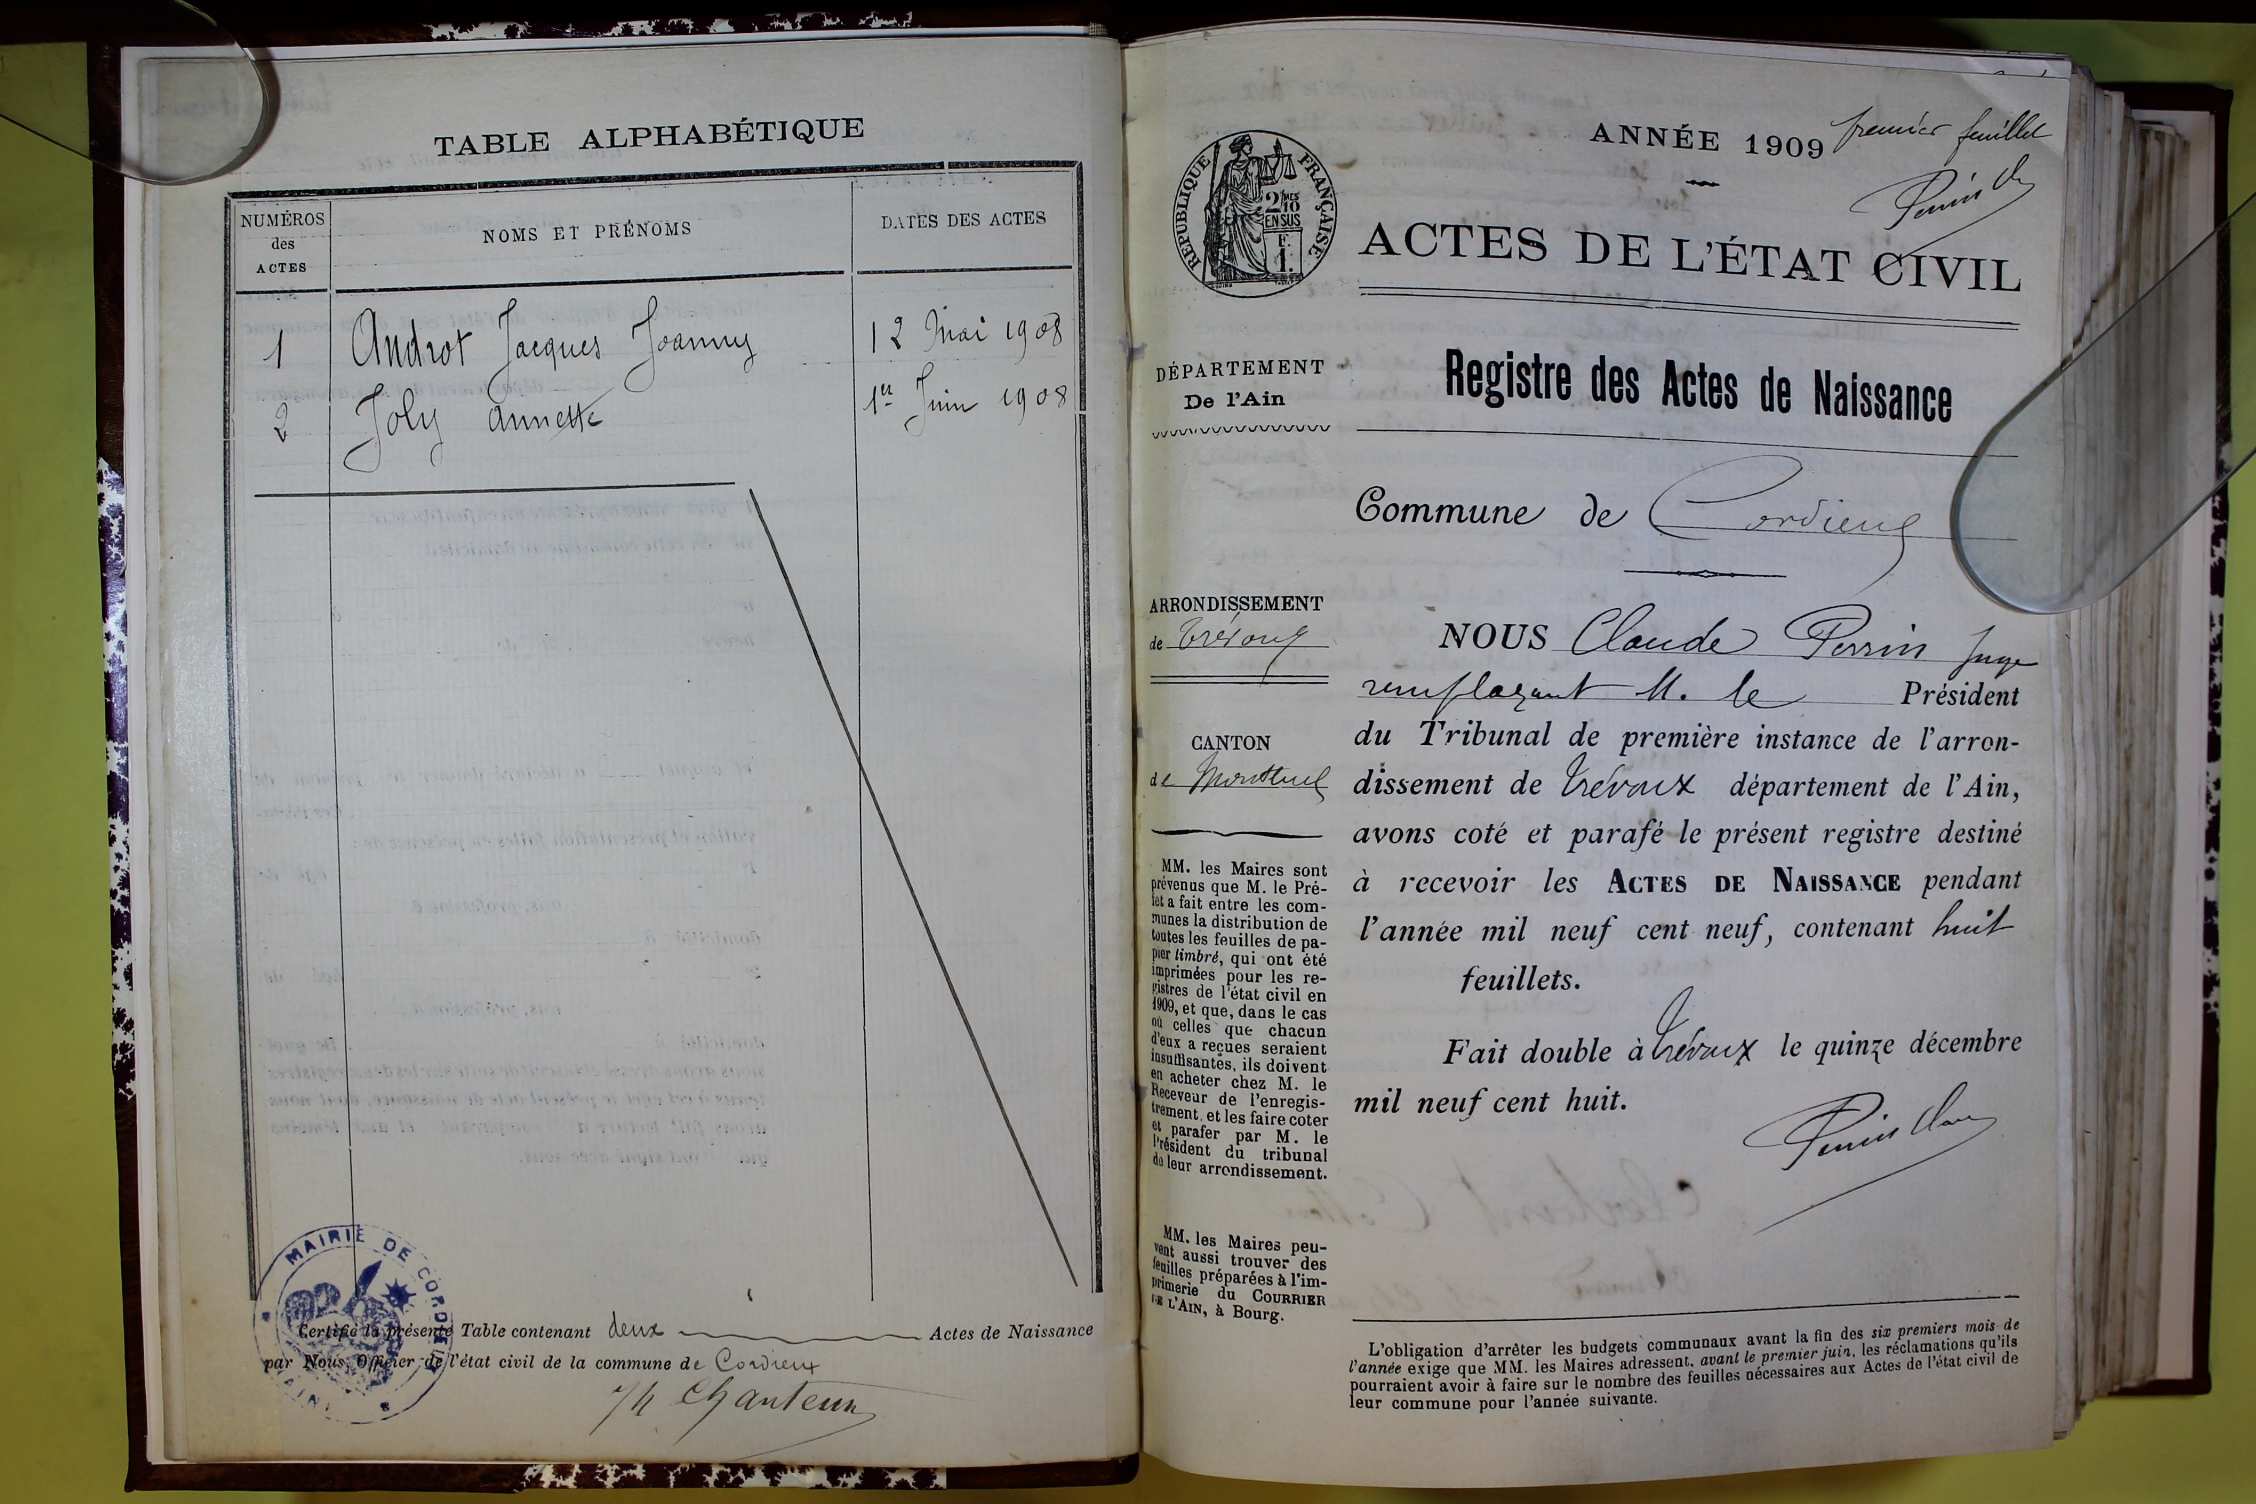 TABLE ALPHABÉTIQUE
NUMÉROS
des
ACTES
NOMS ET PRÉNOMS
DATES DES ACTES
1 Androt Jacques Joanny 12 Mai 1908
2 Joly Annette 1er Juin 1908
MAIRIE DE CORDIEUX
(AIN)
Certifié la présente Table contenant deux Actes de Naissance
par Nous, Officier de l'état civil de la commune de Cordieux
Chanteur
ANNÉE 1909
premier feuillet
Perrin
RÉPUBLIQUE FRANÇAISE
2/10MES
EN SUS
F.
1.
ACTES DE L'ÉTAT CIVIL
DÉPARTEMENT
De l'Ain
Registre des Actes de Naissance
Commune de Cordieux
ARRONDISSEMENT
de Trévoux
CANTON
de Montluel
MM. les Maires sont
prévenus que M. le Pré-
fet a fait entre les com-
munes la distribution de
toutes les feuilles de pa-
pier timbré, qui ont été
imprimées pour les re-
gistres de l'état civil en
1909, et que, dans le cas
où celles que chacun
d'eux a reçues seraient
insuffisantes, ils doivent
en acheter chez M. le
Receveur de l'enregis-
trement, et les faire coter
et parafer par M. le
Président du tribunal
de leur arrondissement.
MM. les Maires peu-
vent aussi trouver des
feuilles préparées à l'im-
primerie du COURRIER
DE L'AIN, à Bourg.
NOUS Claude Perrin Juge
remplaçant M. le Président
du Tribunal de première instance de l'arron-
dissement de Trévoux département de l'Ain,
avons coté et parafé le présent registre destiné
à recevoir les ACTES DE NAISSANCE pendant
l'année mil neuf cent neuf, contenant huit
feuillets.
Fait double à Trévoux le quinze décembre
mil neuf cent huit.
Perrin
L'obligation d'arrêter les budgets communaux avant la fin des six premiers mois de
l'année exige que MM. les Maires adressent, avant le premier juin, les réclamations qu'ils
pourraient avoir à faire sur le nombre des feuilles nécessaires aux Actes de l'état civil de
leur commune pour l'année suivante.